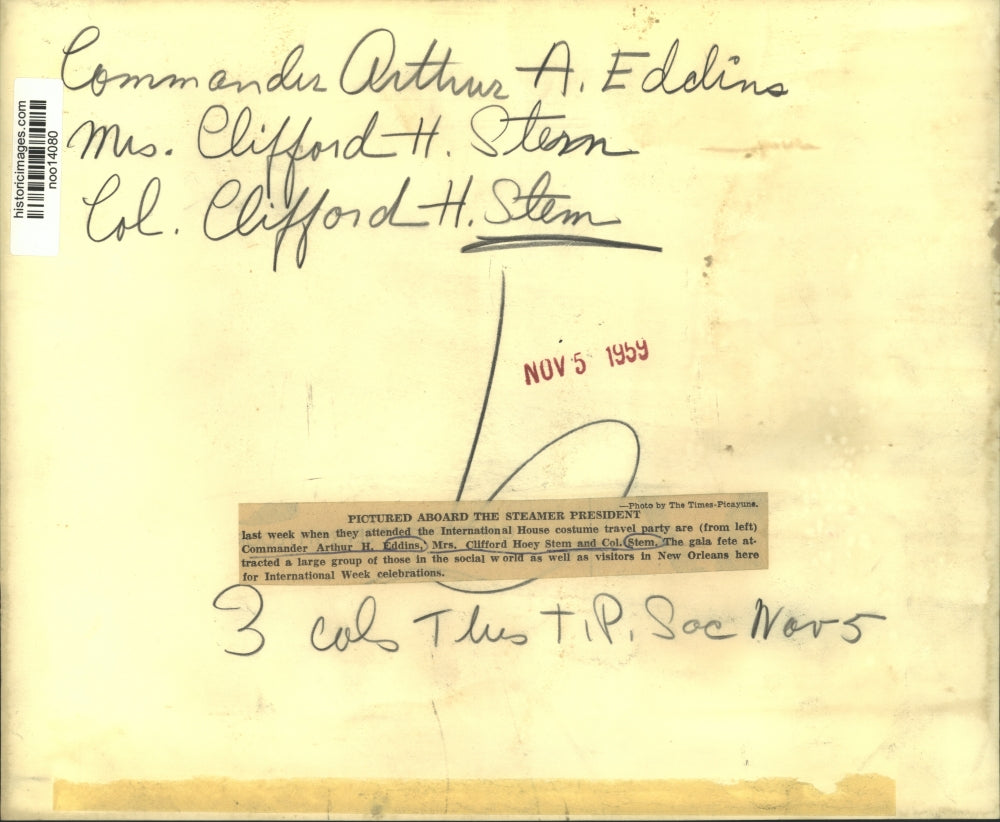 Commander Arthur A. Eddins
Mrs. Clifford H. Stem
Col. Clifford H. Stem
historicimages.com
noo14080
NOV 5 1959
—Photo by The Times-Picayune.
PICTURED ABOARD THE STEAMER PRESIDENT
last week when they attended the International House costume travel party are (from left)
Commander Arthur H. Eddins, Mrs. Clifford Hoey Stem and Col. Stem. The gala fete at-
tracted a large group of those in the social world as well as visitors in New Orleans here
for International Week celebrations.
3 cols Thus T.P. Soc Nov 5